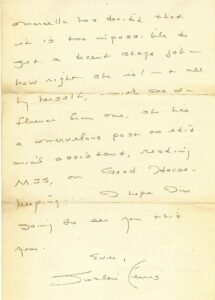 Marcella has decided that
it is too impossible to
get a decent stage job –
how right she is! – & all
by herself, with no in-
fluence from me, she has
a marvelous post as edit-
orial assistant, reading
MSS, on Good House-
keeping. I hope I'm
going to see you this
year.
Ever,
Sinclair Lewis